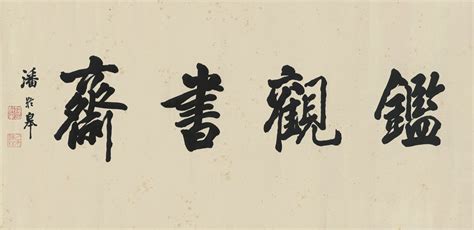 鑑觀書齋
潘齡皋